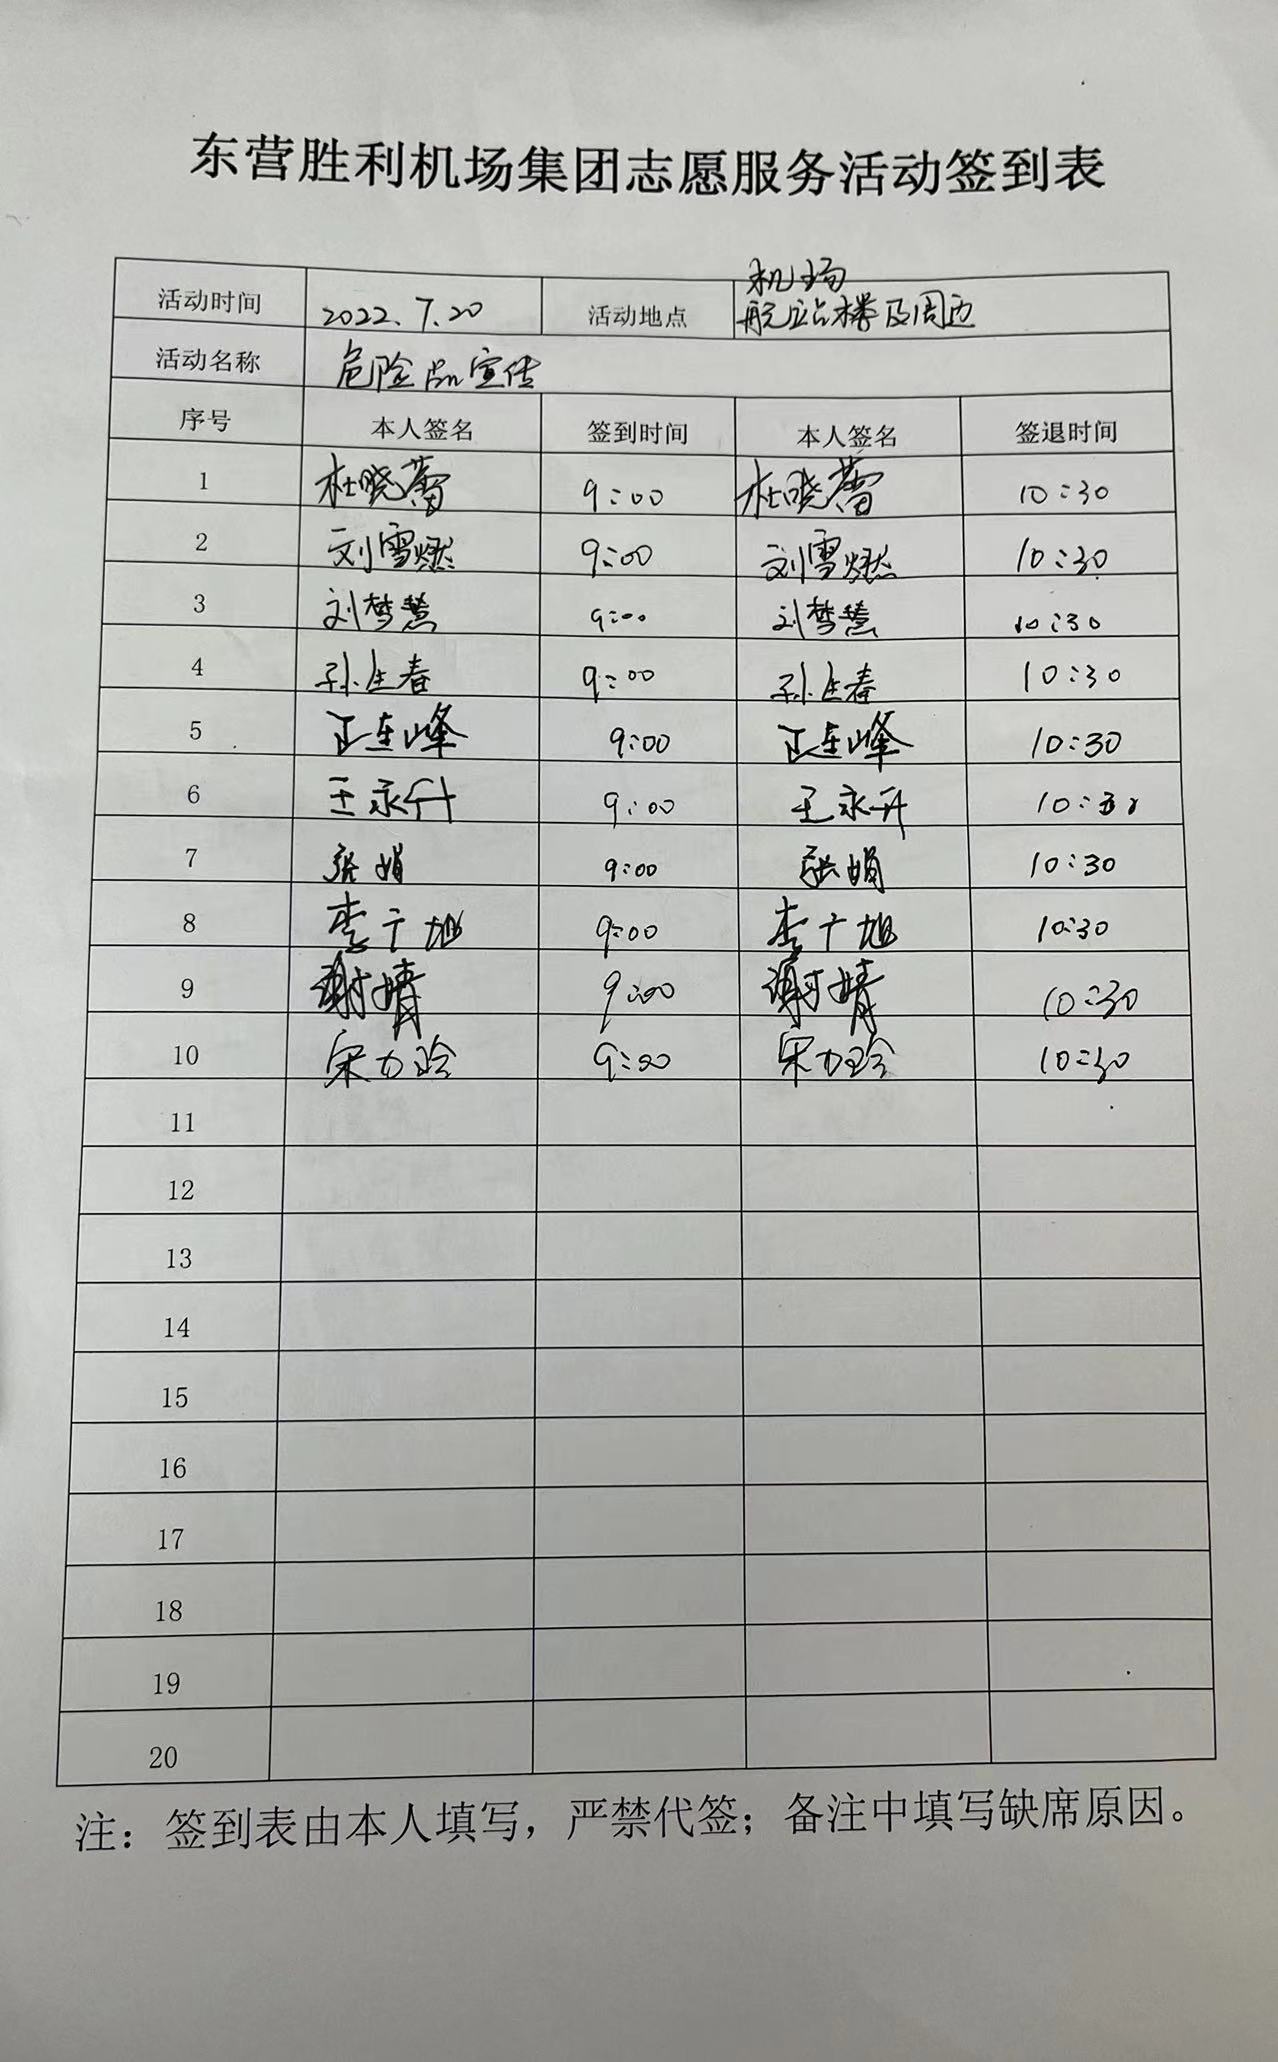 东营胜利机场集团志愿服务活动签到表
机场
活动时间 2022.7.20 活动地点 航站楼及周边
活动名称 危险品宣传
序号 本人签名 签到时间 本人签名 签退时间
1 杜晓蕾 9:00 杜晓蕾 10:30
2 刘雪燃 9:00 刘雪燃 10:30
3 刘梦慧 9:00 刘梦慧 10:30
4 孙生春 9:00 孙生春 10:30
5 9:00 10:30
6 王永升 9:00 王永升 10:30
7 张娟 9:00 张娟 10:30
8 李于旭 9:00 李于旭 10:30
9 谢婧 9:00 谢婧 10:30
10 宋力玲 9:00 宋力玲 10:30
11
12
13
14
15
16
17
18
19
20
注：签到表由本人填写，严禁代签；备注中填写缺席原因。